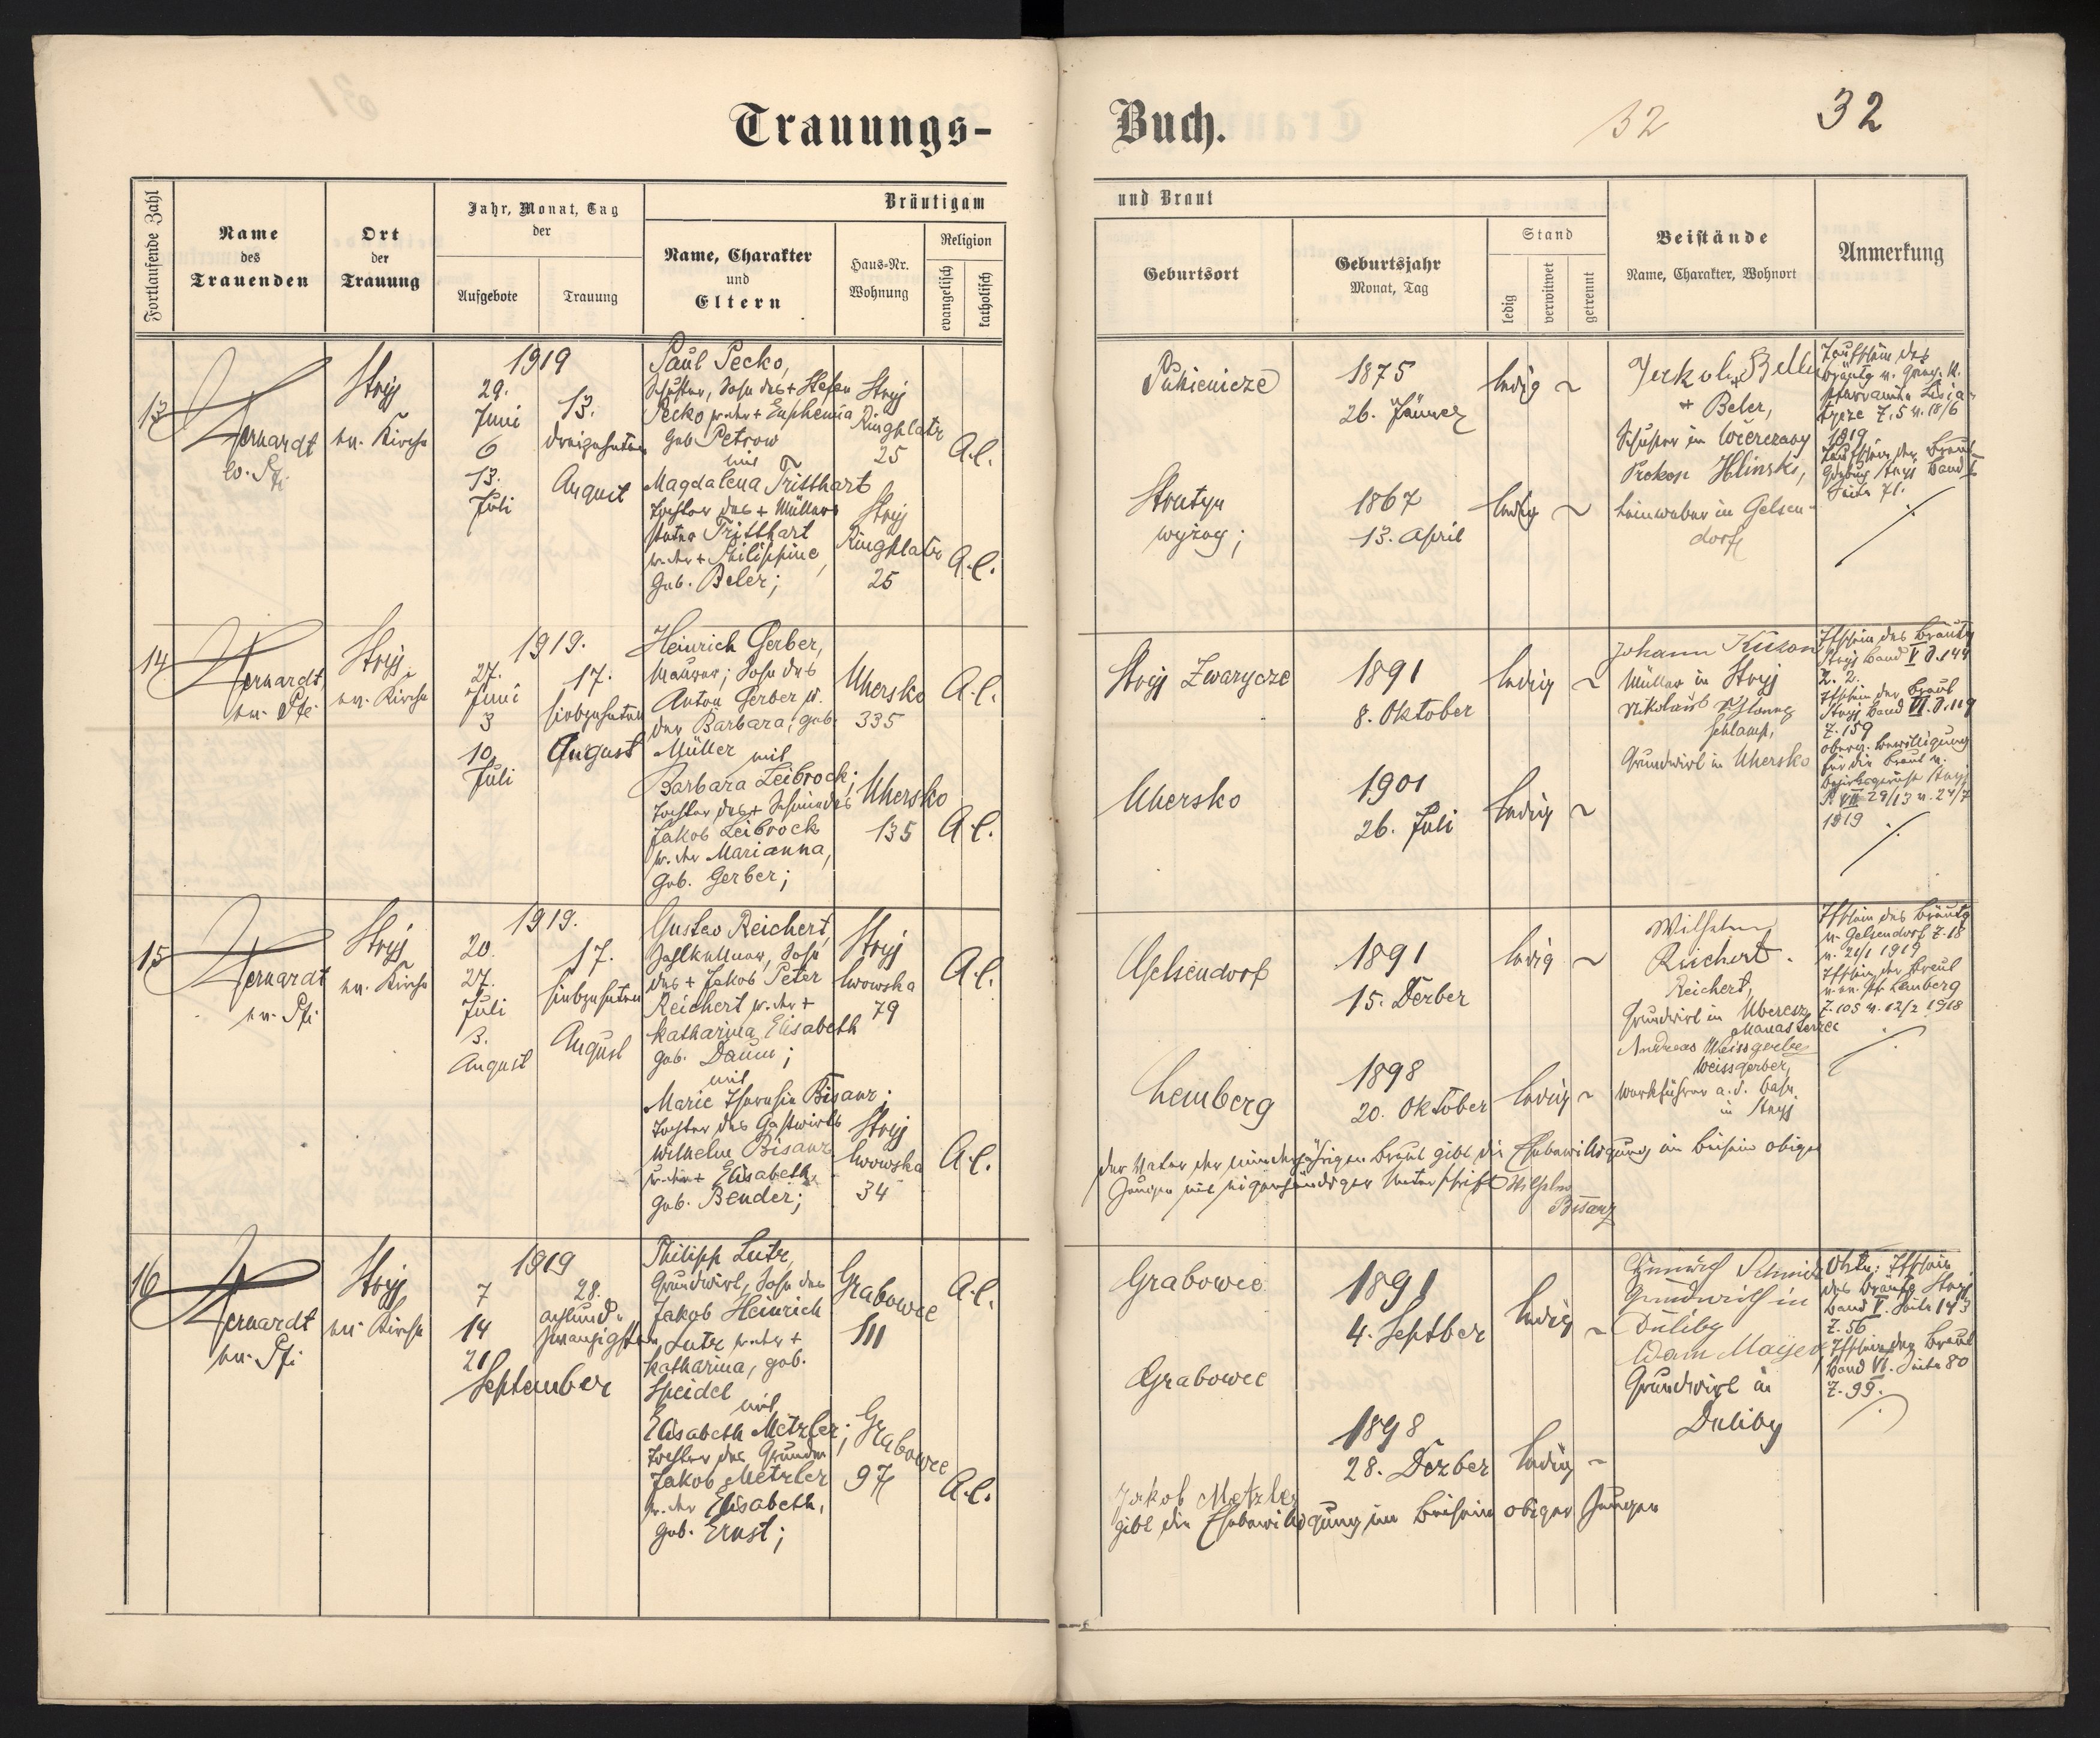 Trauungs-
Buch.
32
32
Fortlaufende Zahl
Name
des
Trauenden
Ort
der
Trauung
Jahr, Monat, Tag
der
Aufgebote
Trauung
Bräutigam
Name, Charakter
und
Eltern
Haus-Nr.
Wohnung
Religion
evangelisch
katholisch
und Braut
Geburtsort
Geburtsjahr
Monat, Tag
Stand
ledig
verwitwet
getrennt
Beistände
Name, Charakter, Wohnort
Anmerkung
13
ev. Pfr
Stryj
ev. Kirche
1919
29.
Juni
6
13.
Juli
13.
dreizehnten
August
Paul Pecko,
Schuster, Sohn des + Stefan
Pecko u. der + Euphemia
geb. Petrow
mit
Magdalena Tritthart
Tochter des + Müllers
Peter Tritthart
u. der + Philippine,
geb. Beler;
Stryj
Ringplatz
25
A.C.
Stryj
Ringplatz
25
A.C.
Pukienicze
1875
26. Jänner
ledig ~
Stratyn
wyżny;
1867
13. April
ledig ~
+ Beler,
Schuster in Wierczany
Prokop Hlinski,
Leinweber in Gelsen-
dorf
Taufschein des
Bräutg v. griech. k.
Pfarramte Lisia-
tycze Z. 5 v. 18/6
1919
Taufschein der Braut
Seite 71.
14
ev. Pfr
Stryj
ev. Kirche
1919.
27.
Juni
3
10.
Juli
17.
siebzehnten
August
Heinrich Gerber,
Maurer; Sohn des
Anton Gerber u.
der Barbara, geb.
Müller mit
Barbara Leibrock;
Tochter des + Schmiedes
Jakob Leibrock
u. der Marianna,
geb. Gerber;
Uhersko
335
A.C.
Uhersko
135
A.C.
Stryj Zwarycze
1891
8. Oktober
ledig ~
Uhersko
1901
26. Juli
ledig ~
Johann Kuzon
Müller in Stryj
Nikolaus
Schlamp,
Grundwirt in Uhersko
Tfschein des Bräutg
Stryj Band V S. 144
Z. 2.
Tfschein der Braut
Stryj Band VI S. 119
Z. 159
oberv. Bewilligung
für die Braut v.
Bezirksgericht Stryj
P VII 29/13 v. 24/7
1919
15
ev. Pfr
Stryj
ev. Kirche
1919.
20.
27.
Juli
3.
August
17.
siebzehnten
August
Gustav Reichert,
Zahlkellner, Sohn
des + Jakob Peter
Reichert u. der +
Katharina Elisabeth
geb. Daum;
mit
Marie Theresia Bisanz;
Tochter des Gastwirts
Wilhelm Bisanz
u. der + Elisabeth,
geb. Bender;
Stryj
Lwowska
79
A.C.
Stryj
Lwowska
34
A.C.
Gelsendorf
1891
15. Dezber
ledig ~
Lemberg
1898
20. Oktober
ledig ~
Wilhelm
Reichert
Reichert,
Grundwirt in Uberesz
Manasterzec
Andreas Weissgerber
Weissgerber,
Werkführer a. d. Bahn
in Stryj
Tfschein des Bräutg
v. Gelsendorf Z. 18
v. 21/1 1919
Tfschein der Braut
v. ev. Pf. Lemberg
Z. 105 v. 12/2 1918
Der Vater der minderjährigen Braut gibt die Ehebewilligung im Beisein obiger
Zeugen mit eigenhändiger Unterschrift Wilhelm
Bisanz
16
ev. Pfr
Stryj
ev. Kirche
1919
7
14
21
September
28.
achtund-
zwanzigsten
Philipp Lutz,
Grundwirt, Sohn des
Jakob Heinrich
Lutz u. der +
Katharina, geb.
Speidel
mit
Elisabeth Metzler;
Tochter des Grundw
Jakob Metzler
u. der Elisabeth,
geb. Ernst;
Grabowce
111
A.C.
Grabowce
97
A.C.
Grabowce
1891
4. Septber
ledig ~
Grabowce
1898
28. Dezber
ledig ~
Heinrich Schmidt
Grundwirth in
Duliby
Adam Mayer,
Grundwirt in
Duliby
Tfschein
des Bräutg Stryj
Band V. Seite 143
Z. 56
Tfschein der Braut
Band VI. Seite 80
Z. 99.
Jakob Metzler
gibt die Ehebewilligung im Beisein obiger Zeugen